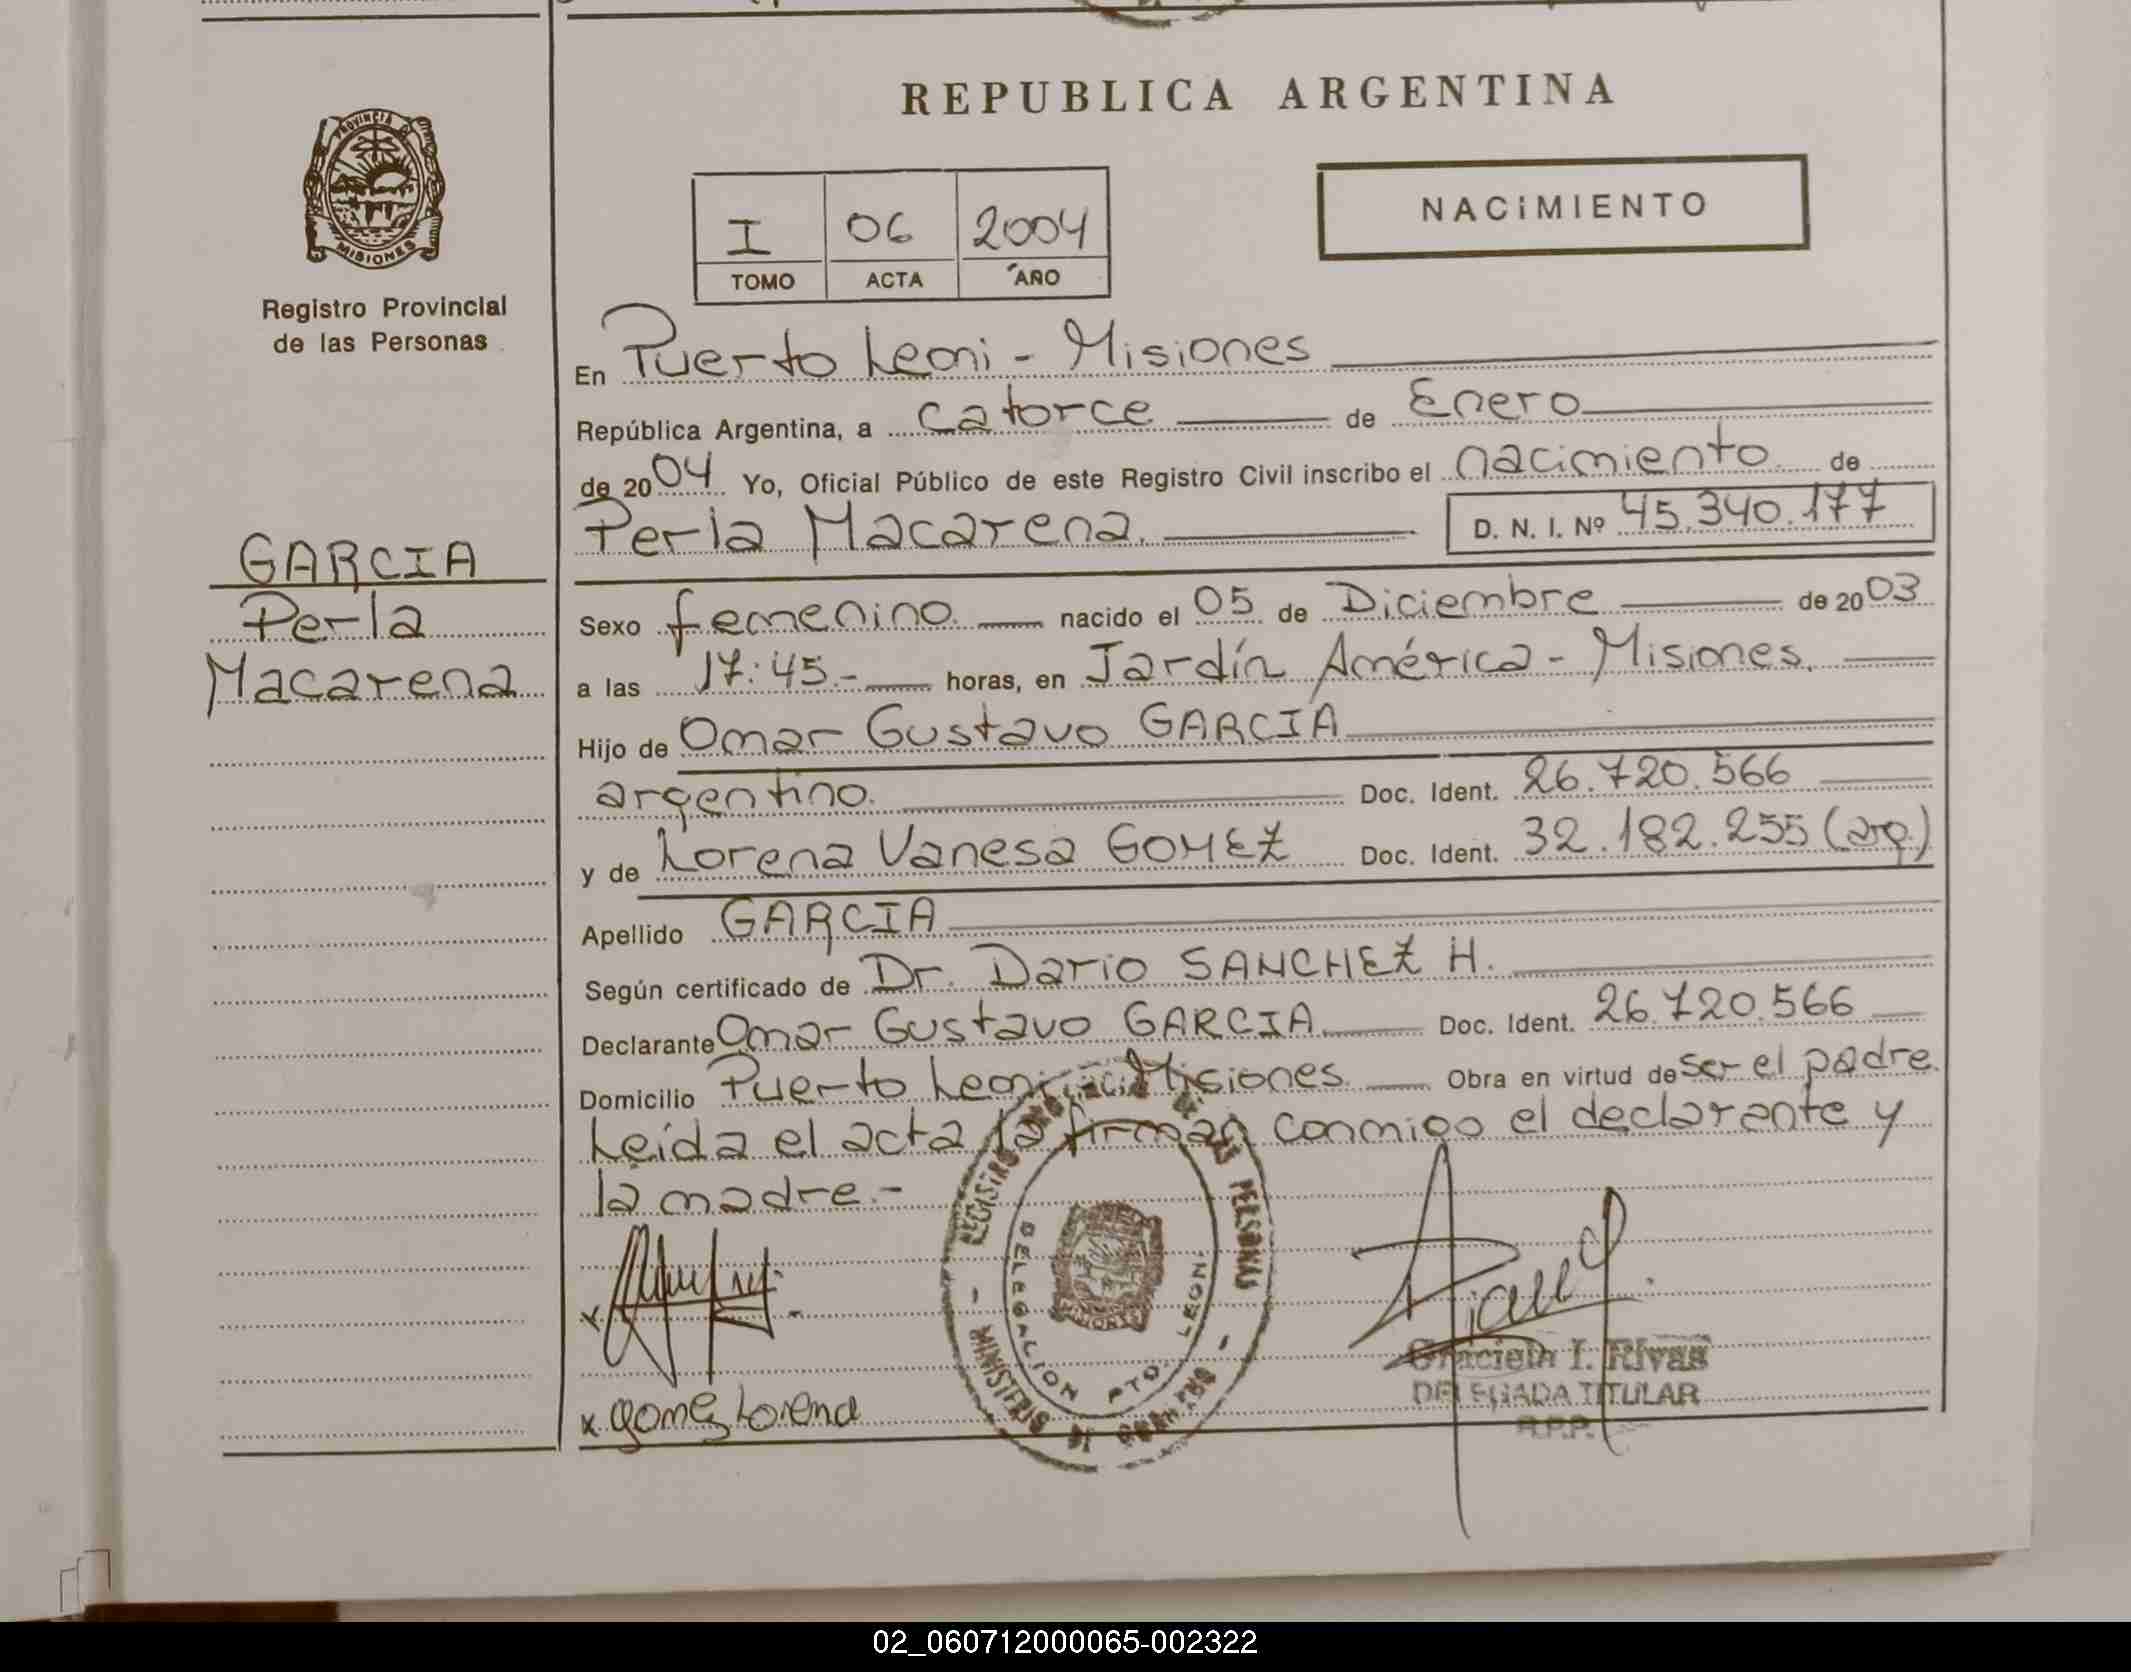 REPUBLICA ARGENTINA
PROVINCIA D
MISIONES
Registro Provincial
de las Personas
I 06 2004
TOMO ACTA AÑO
NACiMIENTO
En Puerto Leoni - Misiones
República Argentina, a catorce de Enero
de 2004 Yo, Oficial Público de este Registro Civil inscribo el nacimiento de
Perla Macarena. D. N. I. Nº 45.340.177
GARCIA
Perla
Macarena
Sexo femenino. nacido el 05 de Diciembre de 2003
a las 17:45.- horas, en Jardín América - Misiones.
Hijo de Omar Gustavo GARCIA
argentino. Doc. Ident. 26.720.566
y de Lorena Vanesa GOMEZ Doc. Ident. 32.182.255 (arg.)
Apellido GARCIA
Según certificado de Dr. Dario SANCHEZ H.
Declarante Omar Gustavo GARCIA Doc. Ident. 26.720.566
Domicilio Puerto Leoni Misiones. Obra en virtud de ser el padre.
Leida el acta la firman conmigo el declarante y
la madre.-
REGISTRO DE LAS PERSONAS
DELEGACION PTO. LEONI
- MINISTERIO DE GOBIERNO -
x gomez Lorena
Graciela I. Rivas
DELEGADA TITULAR
R.P.P.
02_060712000065-002322